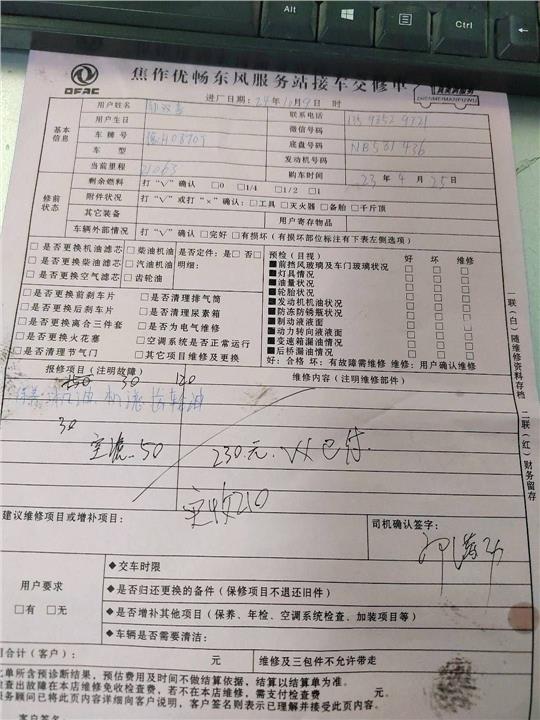 Alt
Ctrl
DFAC
焦作优畅东风服务站接车交修单
进厂日期：24年10月9日 时
基本信息
用户姓名
联系电话
用户生日
微信号码
车牌号
底盘号码 NB581436
车 型
发动机号码
当前里程 21063
购车时间 23年4月25日
修前状态
剩余燃料 打“√”确认 □0 □1/4 □1/2 □1
附件状况 打“√”或打“×”确认：□工具 □灭火器 □备胎 □千斤顶
其它装备 用户寄存物品
车辆外部情况 打“√”确认 □完好 □有损坏（有损坏部位标注有下表左侧选项）
□是否更换机油滤芯 □柴油机油 是否定件：是□否□
□是否更换柴油滤芯 □汽油机油 明细：
□是否更换空气滤芯 □齿轮油
□是否更换前刹车片 □是否清理排气筒
□是否更换后刹车片 □是否清理尿素箱
□是否更换离合三件套 □是否为电气维修
□是否更换火花塞 □空调系统是否正常运行
□是否清理节气门 □其它项目维修及更换
预检（目视） 好 坏 维修
■前挡风玻璃及车门玻璃状况 □ □ □
■灯具情况 □ □ □
■油量状况 □ □ □
■轮胎状况 □ □ □
■发动机机油状况 □ □ □
■防冻防锈瓶状况 □ □ □
■制动液液面 □ □ □
■动力转向液液面 □ □ □
■变速箱漏油情况 □ □ □
■后桥漏油情况 □ □ □
好：合格 坏：有故障需维修 维修：用户确认维修
一联（白）随维修资料存档 二联（红）财务留存
报修项目（注明故障）
维修内容（注明维修部件）
150 30 120
保养：机油 机滤 齿轮油
30
空滤 50
230元 VX已付
实收210
建议维修项目或增补项目：
司机确认签字：
用户要求
□有 □无
◆交车时限
◆是否归还更换的备件（保修项目不退还旧件）
◆是否增补其他项目（保养、年检、空调系统检查、加装项目等）
◆车辆是否需要清洁：
合计（客户）： 元 维修及三包件不允许带走
此单所含预诊断结果，预估费用及时间不做结算依据，结算以结算单为准。
检查出故障在本店维修免收检查费，若不在本店维修，需支付检查费 元。
服务顾问已将此页内容详细向客户说明，客户签名则表示已理解并接受此页内容。
客户签名